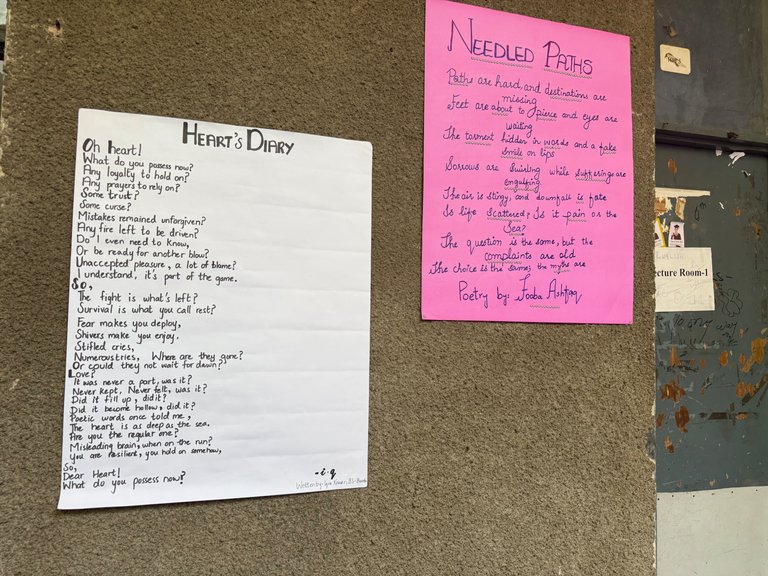 HEART'S DIARY
Oh Heart!
What do you possess now?
Any loyalty to hold on?
Any prayers to rely on?
Some trust?
Some curse?
Mistakes remained unforgiven?
Any fire left to be driven?
Do I even need to know,
Or be ready for another blow?
Unaccepted pleasure, a lot of blame?
I understand, it's part of the game.
So,
The fight is what's left?
Survival is what you call rest?
Fear makes you deploy,
Shivers make you enjoy.
Stifled cries,
Numerous tries, Where are they gone?
Or could they not wait for dawn?
Love?
It was never a part, was it?
Never kept, Never felt, was it?
Did it fill up, did it?
Did it become hollow, did it?
Poetic words once told me,
The heart is as deep as the sea.
Are you the regular one?
Misleading brain, when on the run?
You are resilient, you hold on somehow,
So,
Dear Heart!
What do you possess now?
-i.q
Written by:
NEEDLED PATHS
Paths are hard, and destinations are
missing
Feet are about to pierce and eyes are
waiting
The torment hidden in words and a fake
smile on lips
Sorrows are swirling while sufferings are
engulfing
The air is stingy, and downfall is fate
Is life scattered? Is it pain or the
Sea?
The question is the same, but the
complaints are old
The choice is the same; the myths are
Poetry by: Zooba Ashfaq
cture Room-1